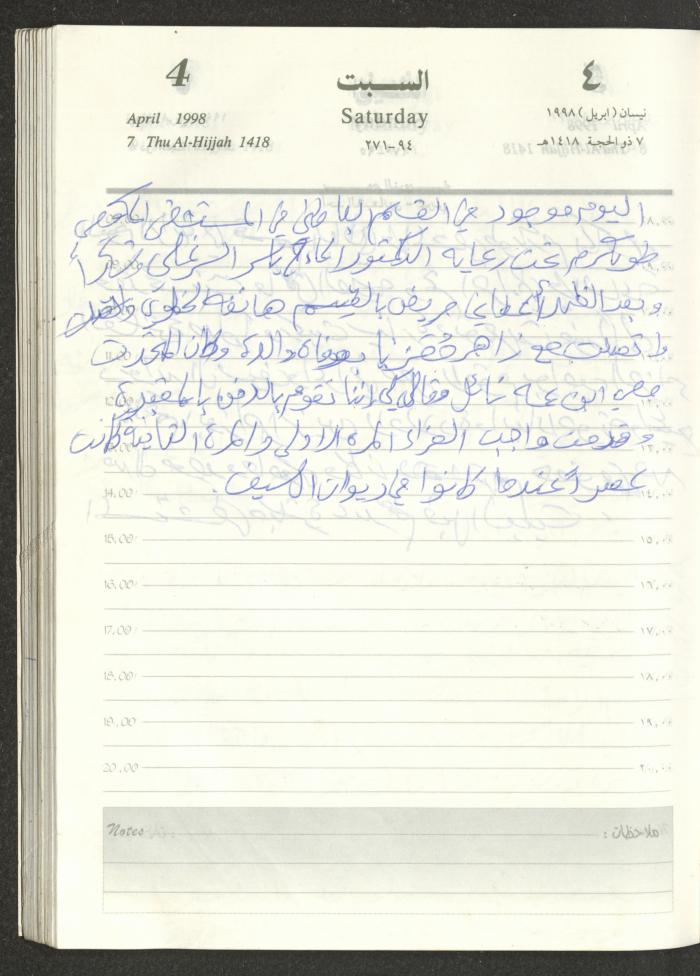 4 السبت ٤
April 1998 Saturday نيسان (ابريل) ١٩٩٨
7 Thu Al-Hijjah 1418 ٩٤-٢٧١ ٧ ذو الحجة ١٤١٨هـ
اليوم موجود في القسم الباطني في المستشفى الحكومي
طولكرم تحت رعاية الدكتور
وبعد الظهر أعطاني مريض بالقسم هاتفه الخلوي
واتصلت مع زاهر بوفاة والدة وكان المتحدث
معي ابن عمه نائل فقال لي اننا نقوم بالدفن بالمقبرة
وقدمت واجب العزاء المرة الاولى والمرة الثانية كانت
عصراً عندما كانوا في ديوان السيف.
14.00 ١٤,٠٠
15.00 ١٥,٠٠
16.00 ١٦,٠٠
17.00 ١٧,٠٠
18.00 ١٨,٠٠
19.00 ١٩,٠٠
20.00 ٢٠,٠٠
Notes ملاحظات :